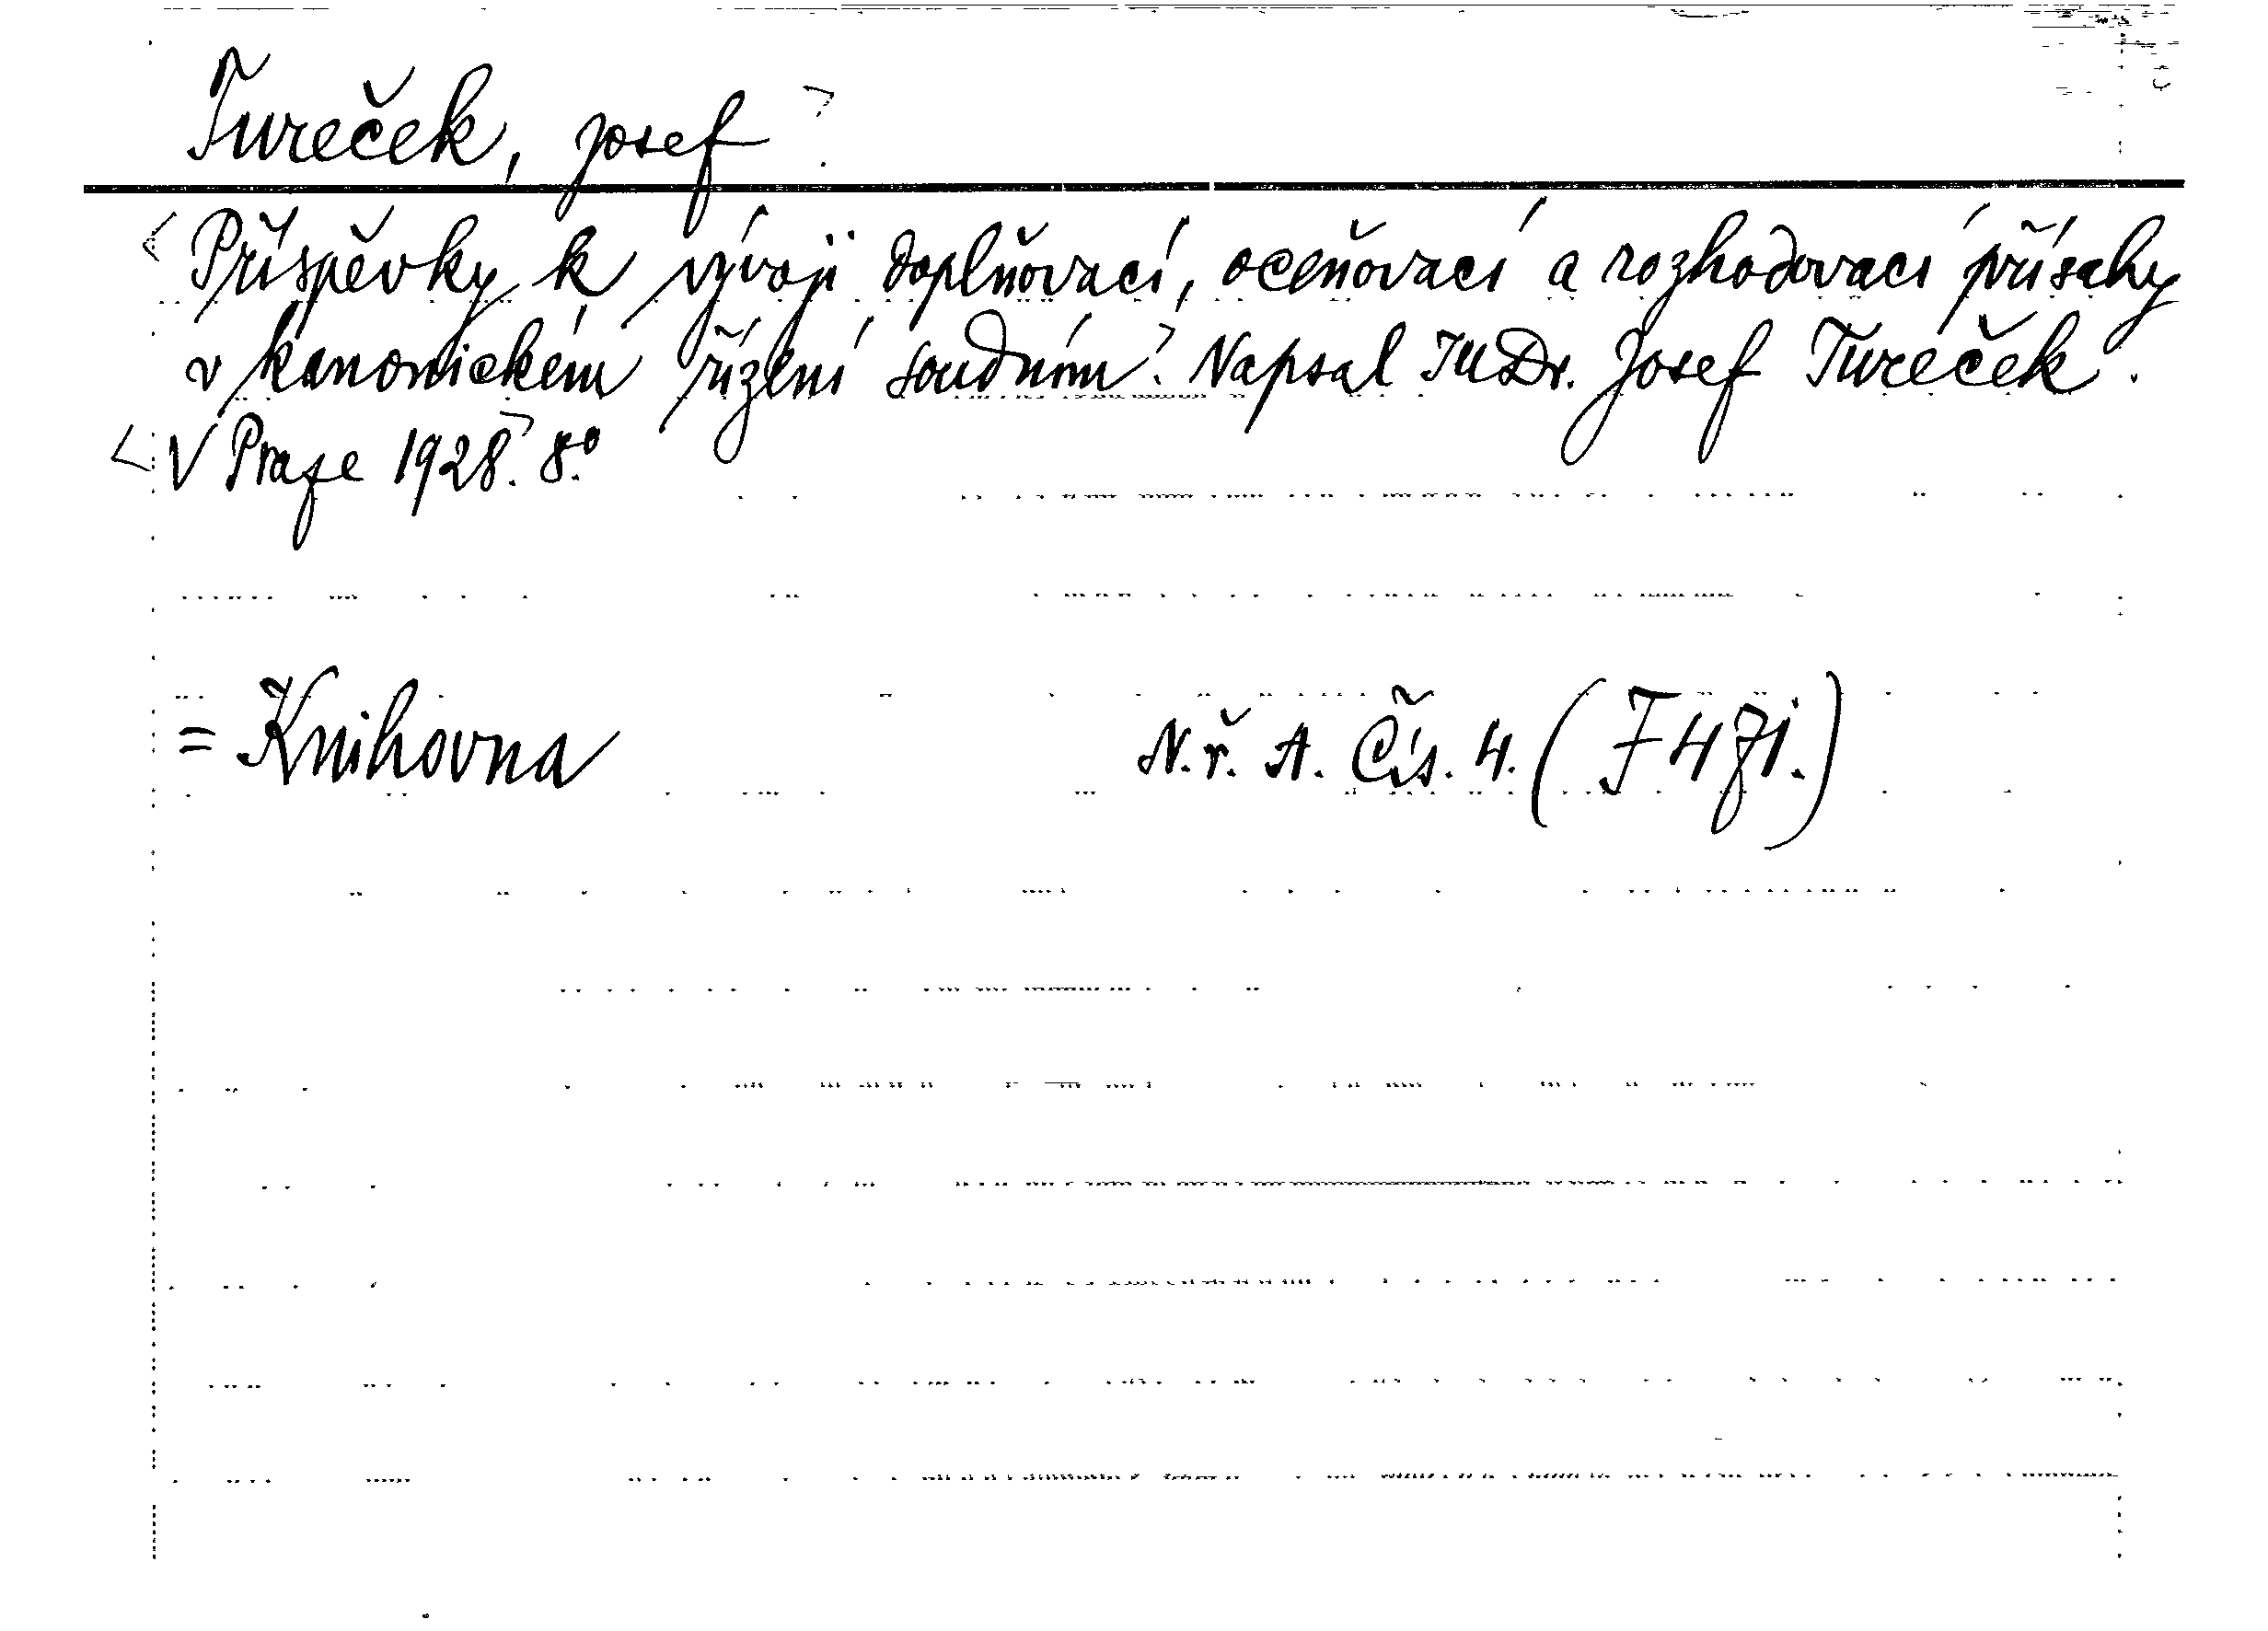 Tureček, Josef
Příspěvky k vývoji doplňovací, oceňovací a rozhodovací přísahy
v kanonickém řízení soudním. Napsal JUDr. Josef Tureček.
V Praze 1928. 8.°
= Knihovna N. ř. A. Čís. 4. (